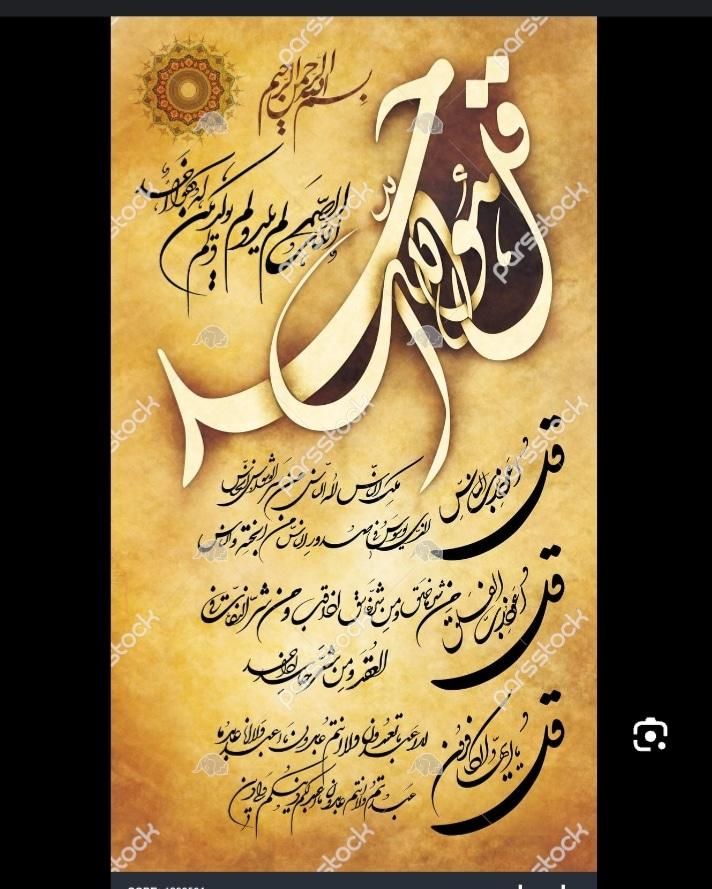 بسم الله الرحمن الرحیم
قل هو الله احد
الله الصمد لم یلد ولم یولد ولم یکن له کفوا احد
قل اعوذ برب الناس ملک الناس اله الناس من شر الوسواس الخناس
الذی یوسوس فی صدور الناس من الجنة والناس
قل اعوذ برب الفلق من شر ما خلق ومن شر غاسق اذا وقب ومن شر النفاثات فی
العقد ومن شر حاسد اذا حسد
قل یا ایها الکافرون لا اعبد ما تعبدون ولا انتم عابدون ما اعبد ولا انا عابد ما
عبدتم ولا انتم عابدون ما اعبد لکم دینکم ولی دین
parsstock